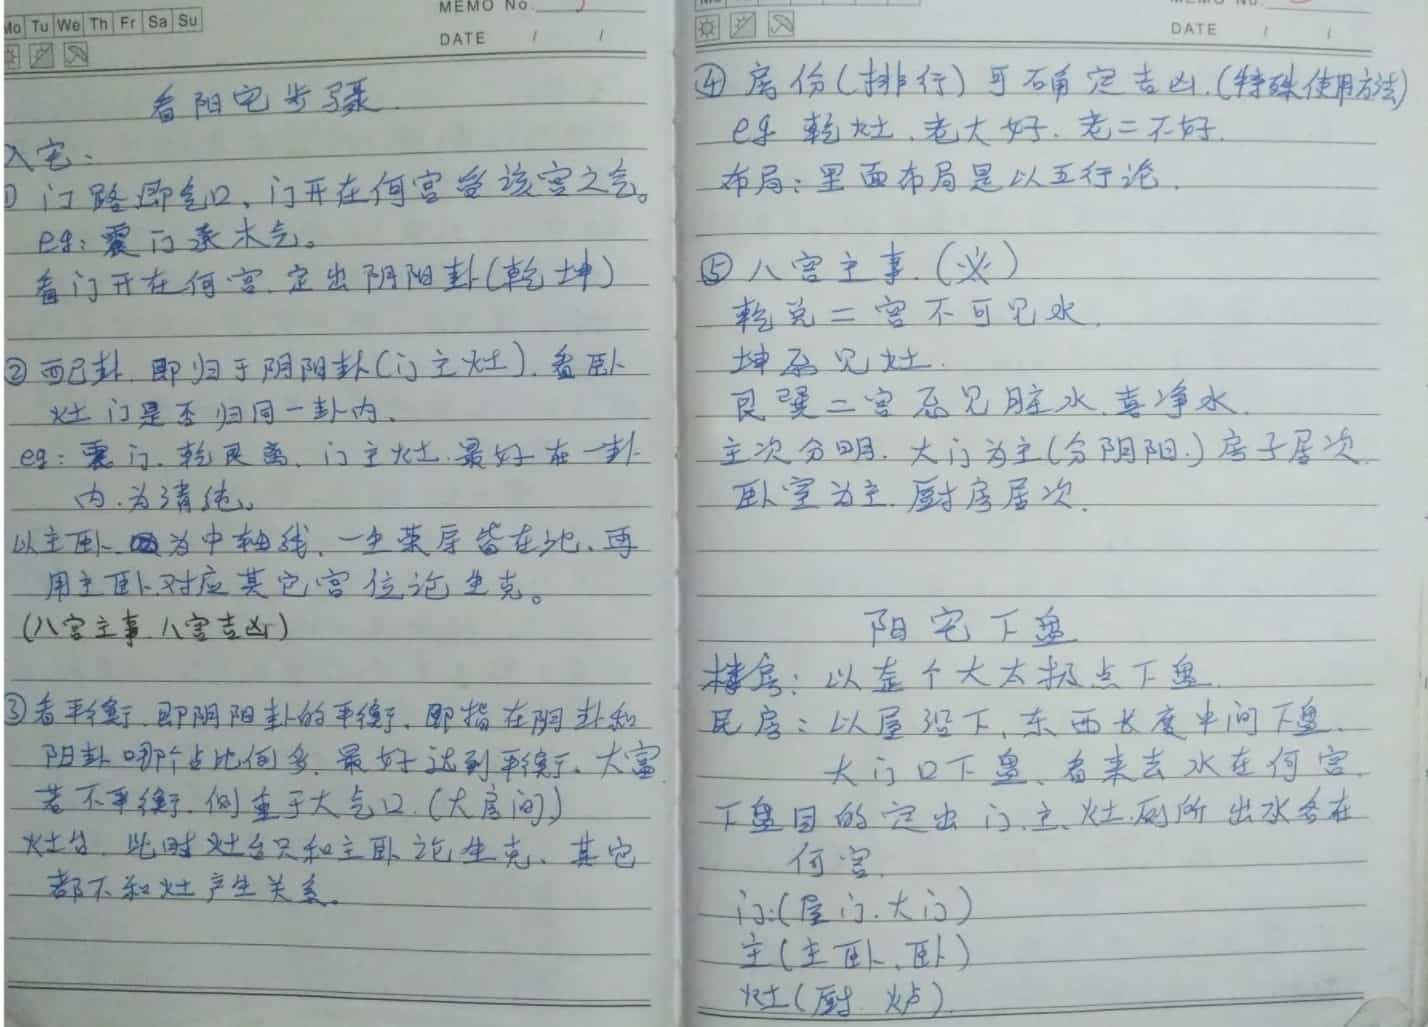 Mo Tu We Th Fr Sa Su
MEMO No.
DATE / /
看阳宅步骤
入宅:
① 门路即气口、门开在何宫受该宫之气。
eg: 震门承木气。
看门开在何宫.定出阴阳卦(乾坤)
② 配卦.即归于阴阳卦(门主灶).看卧
灶门是否归同一卦内.
eg: 震门.乾艮离、门主灶.最好在一卦
内.为清纯。
以主卧为中轴线、一生荣辱皆在此、再
用主卧对应其它宫位论生克。
(八宫主事.八宫吉凶)
③看平衡.即阴阳卦的平衡.即指在阴卦和
阳卦哪个占比例多.最好达到平衡.大富.
若不平衡.侧重于大气口.(大房间)
灶台.此时灶台只和主卧论生克、其它
都不和灶产生关系.
MEMO No.
DATE / /
④ 房份(排行)可确定吉凶.(特殊使用方法)
eg 乾灶.老大好.老二不好.
布局:里面布局是以五行论.
⑤ 八宫主事.(火)
乾兑二宫不可见水.
坤忌见灶.
艮巽二宫忌见脏水.喜净水.
主次分明.大门为主(分阴阳.)房子居次
卧室为主.厨房居次.
阳宅下盘
楼房:以整个大太极点下盘.
民房:以屋沿下、东西长度中间下盘.
大门口下盘、看来去水在何宫.
下盘目的定出门.主.灶.厕所出水各在
何宫.
门:(屋门.大门)
主(主卧、卧)
灶(厨.炉).